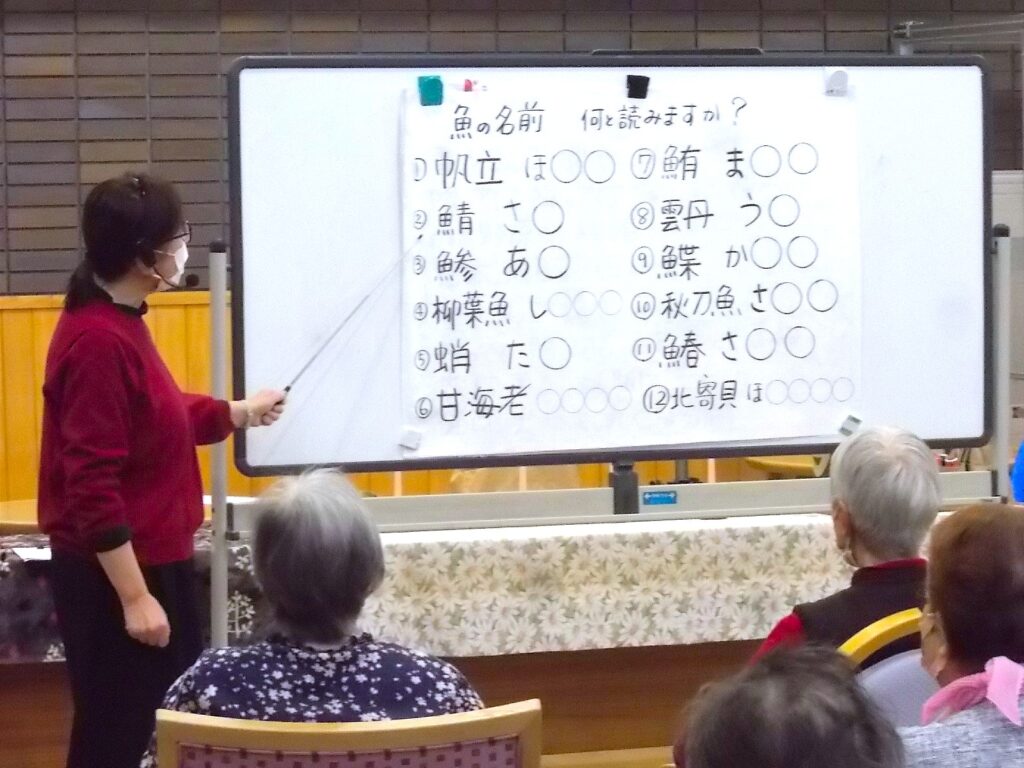 魚の名前 何と読みますか?
①帆立 ほ○○
②鯖 さ○
③鯵 あ○
④柳葉魚 し○○○
⑤蛸 た○
⑥甘海老 ○○○○
⑦鮪 ま○○
⑧雲丹 う○
⑨鰈 か○○
⑩秋刀魚 さ○○
⑪鰆 さ○○
⑫北寄貝 ほ○○○○